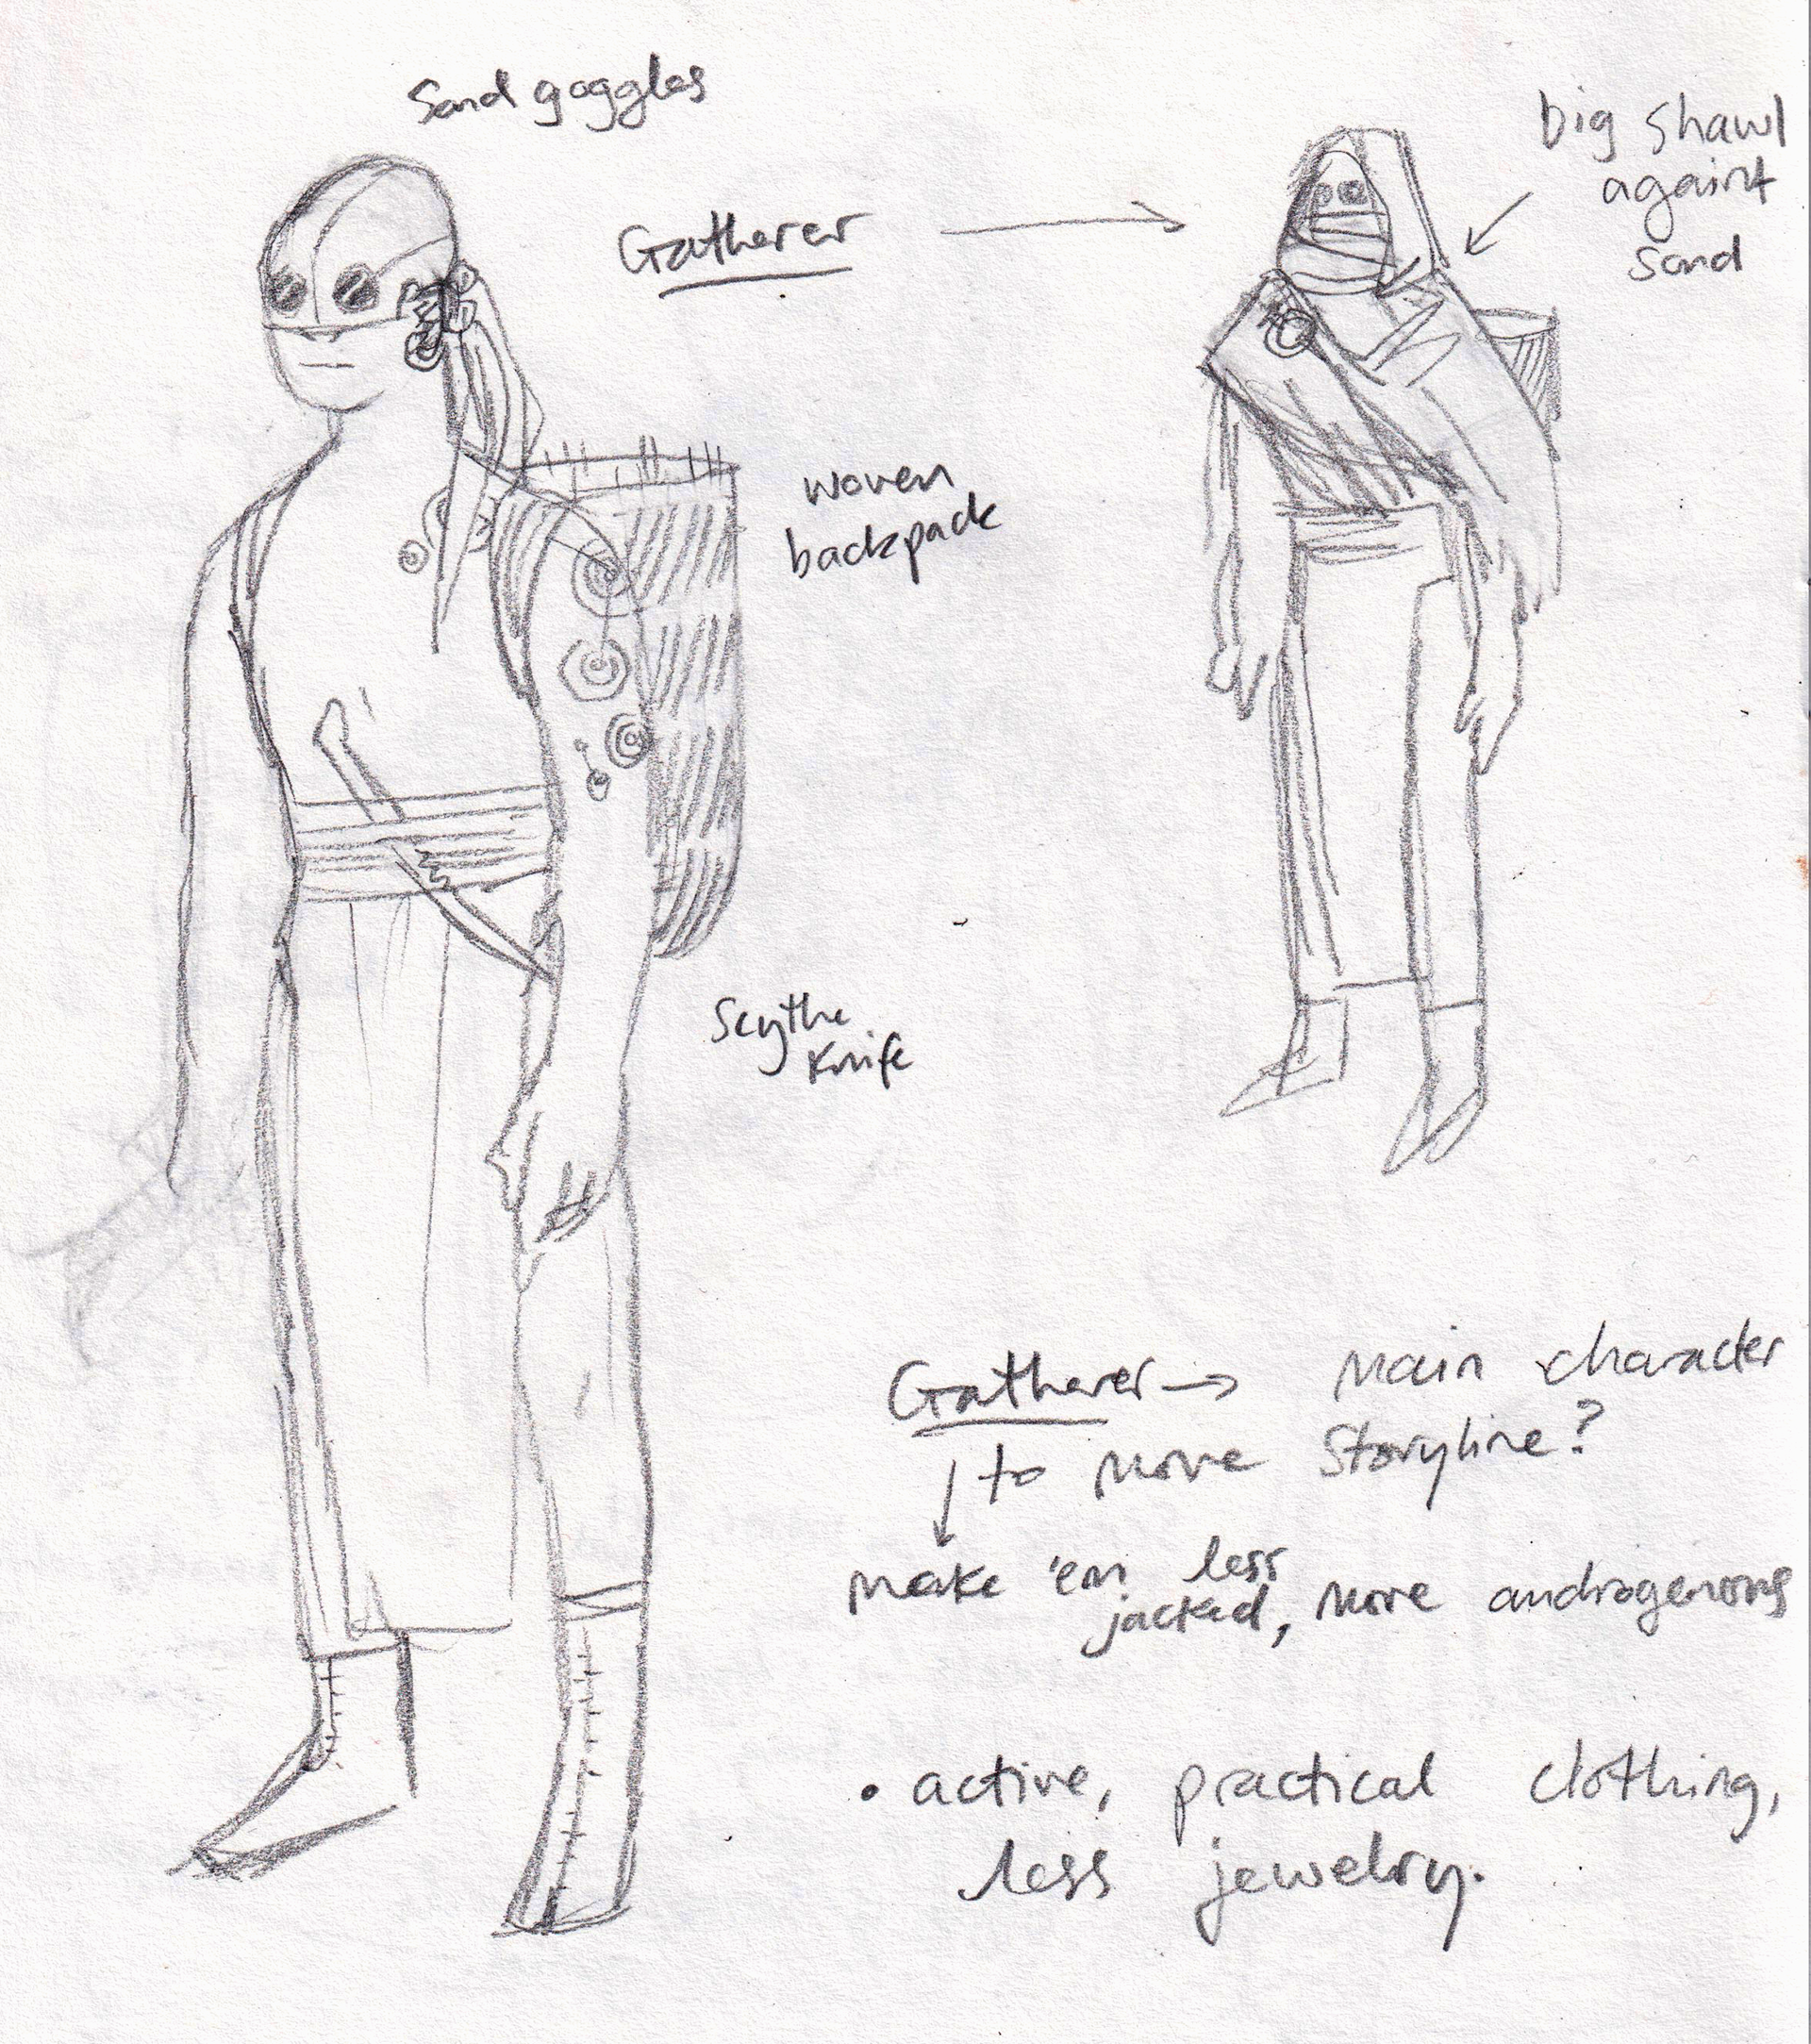 Sand goggles
Gatherer
big shawl
againt
sand
woven
backpack
Scythe
Knife
Gatherer → main character
to move storyline?
make 'em less
jacked, more androgenous
• active, practical clothing,
less jewelry.